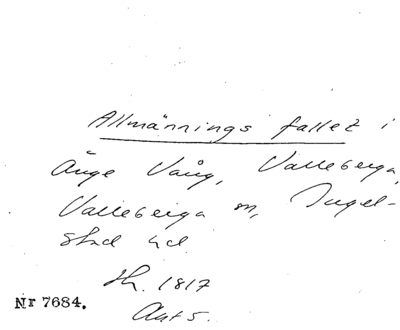 Allmännings fallet i
Änge Vång, Valleberga,
Valleberga sn, Ingel-
stad hd.
Sk. 1817
Nr 7684.
Avt 5.